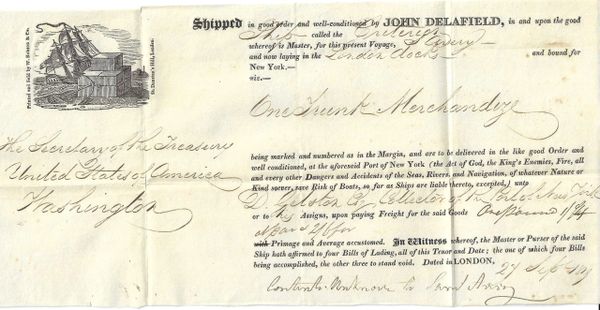 Printed and Sold by W.
St. Dunstan's Hill, London.
Shipped in good order and well-conditioned by JOHN DELAFIELD, in and upon the good
Ship called the Criterion
whereof is Master, for this present Voyage, Avery
and now laying in the London Docks and bound for
New York.—
viz.—
One Trunk Merchandize
The Secretary of the Treasury
United States of America
Washington
being marked and numbered as in the Margin, and are to be delivered in the like good Order and
well conditioned, at the aforesaid Port of New York (the Act of God, the King's Enemies, Fire, all
and every other Dangers and Accidents of the Seas, Rivers, and Navigation, of whatever Nature or
Kind soever, save Risk of Boats, so far as Ships are liable thereto, excepted,) unto
D. Gelston Esq Collector of the Port of New York
or to his Assigns, upon paying Freight for the said Goods One pound
with Primage and Average accustomed. In Witness whereof, the Master or Purser of the said
Ship hath affirmed to four Bills of Lading, all of this Tenor and Date; the one of which four Bills
being accomplished, the other three to stand void. Dated in LONDON,
27 Sep
Contents Unknown to